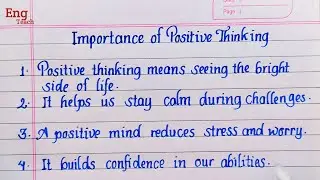 Eng
Teach
Importance of Positive Thinking
1. Positive thinking means seeing the bright
side of life.
2. It helps us stay calm during challenges.
3. A positive mind reduces stress and worry.
4. It builds confidence in our abilities.